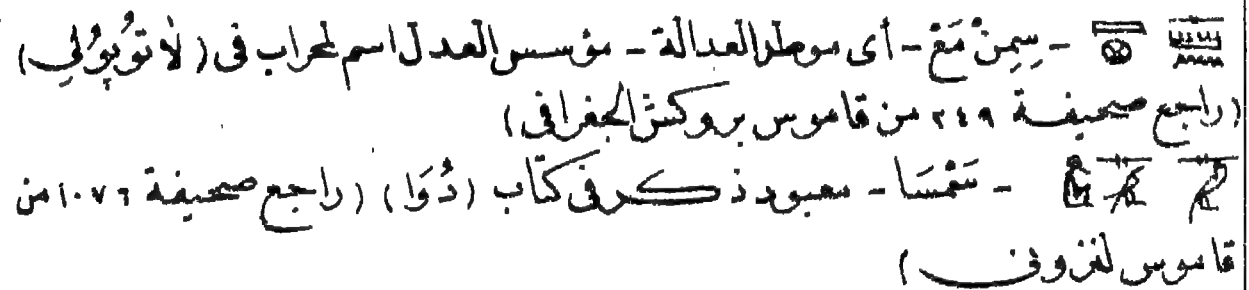 - سِمِنْ مَعْ - أى موطد العدالة - مؤسس العدل اسم لمحراب فى (لاتوُبوُلي)
(راجع صحيفة ٢٤٩ من قاموس بروكش الجغرافى)
- سَمْسَا - معبود ذكر فى كتاب (دُوَا) (راجع صحيفة ١٠٧٦ من
قاموس لنزونى)